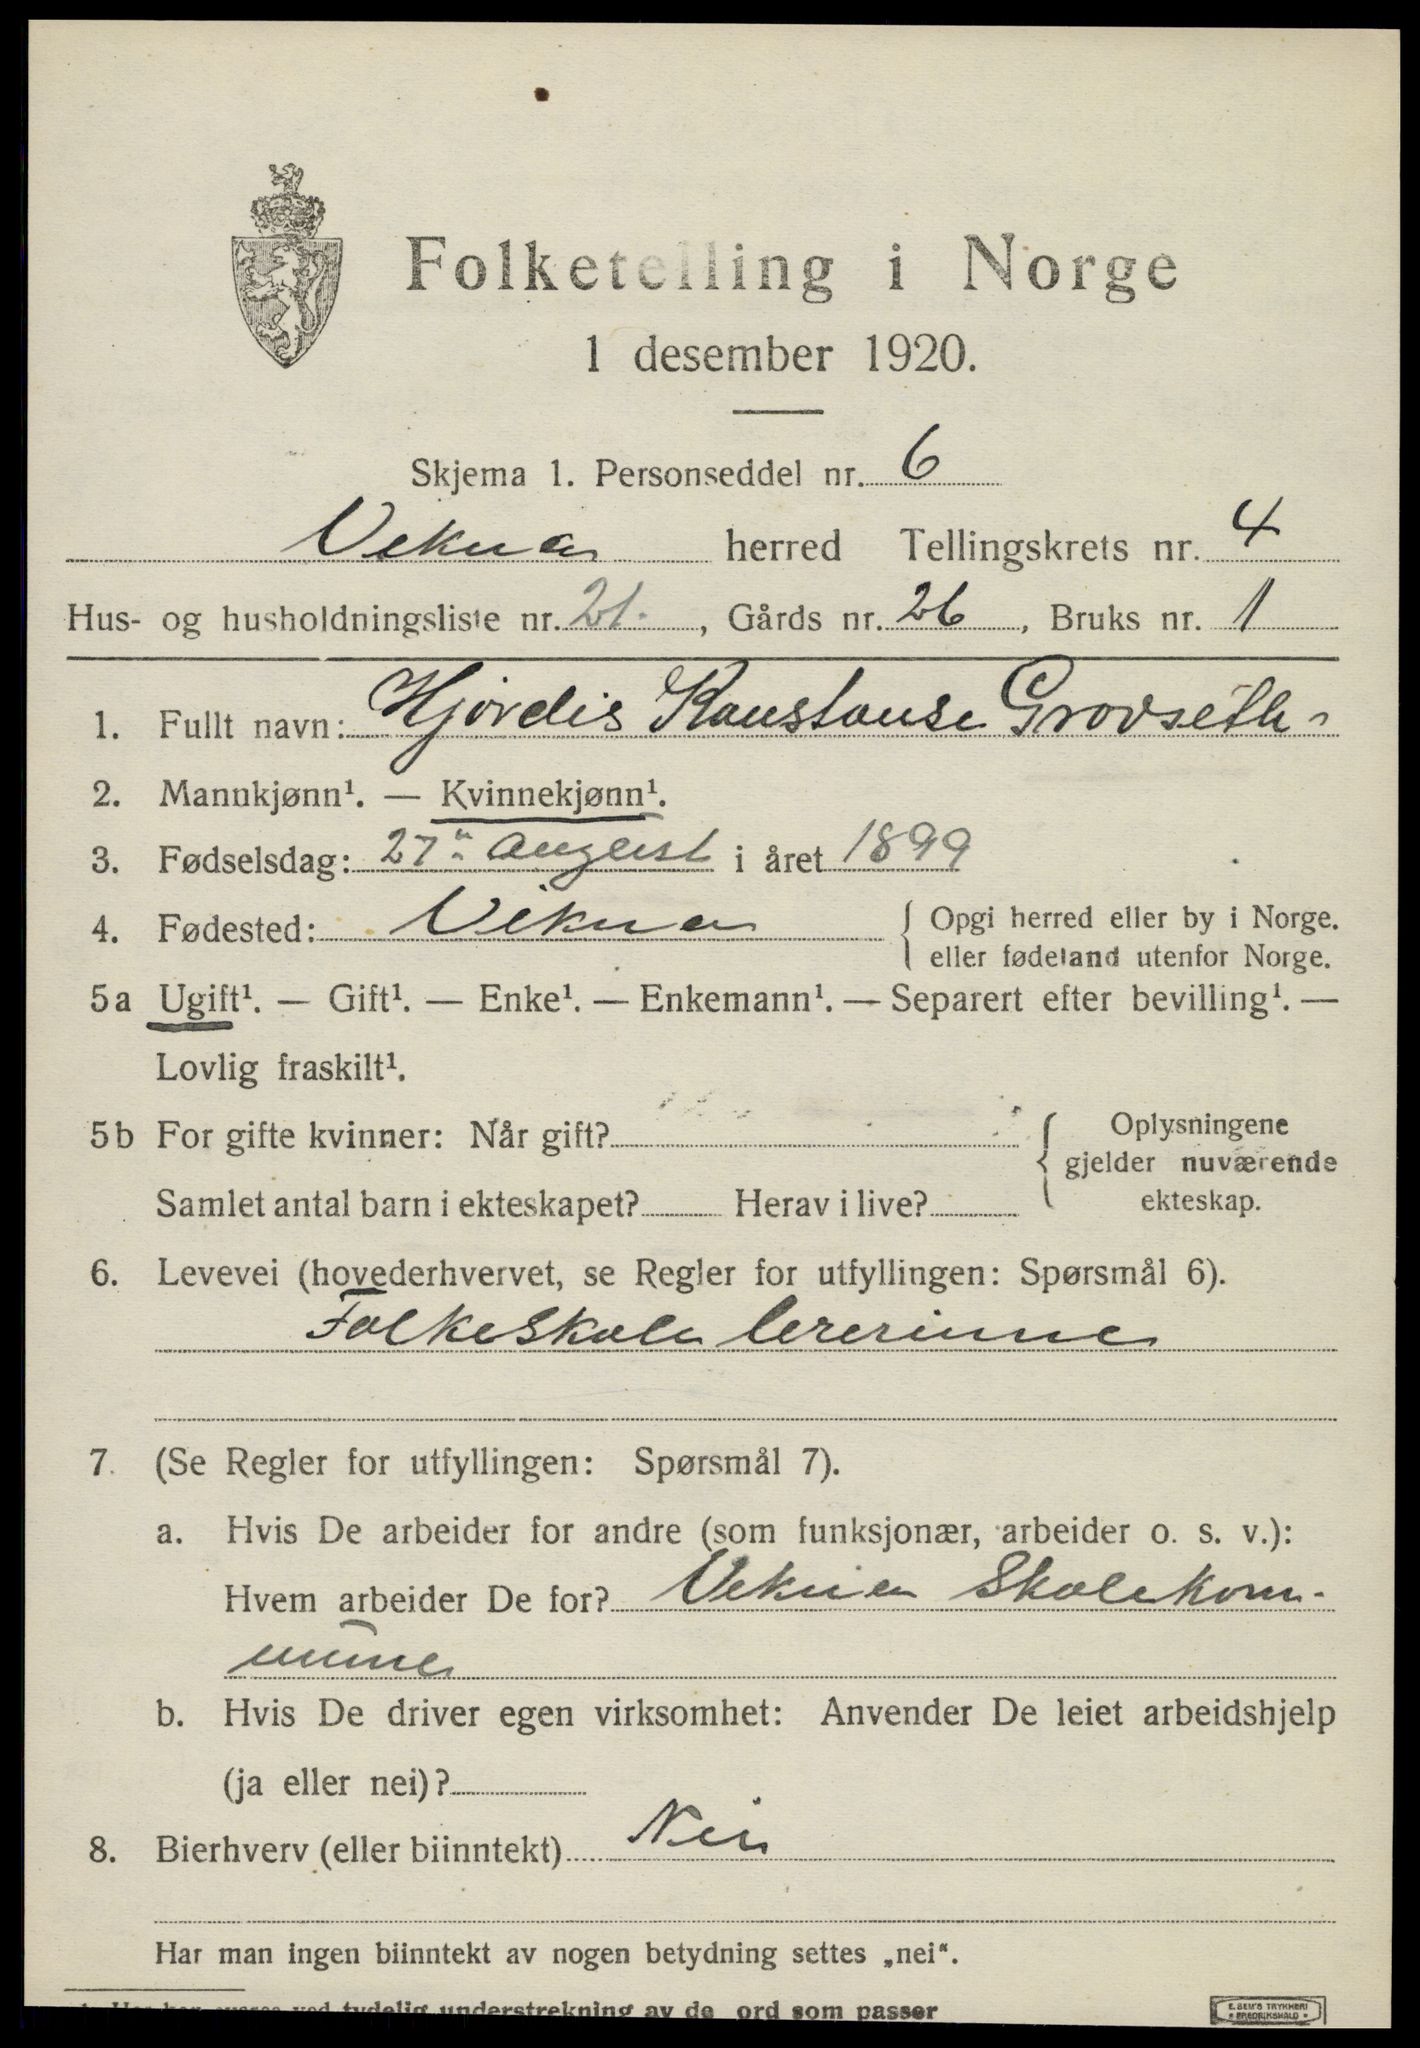 Folketelling i Norge
1 desember 1920.
Skjema 1. Personseddel nr. 6
Vikna herred Tellingskrets nr. 4
Hus- og husholdningsliste nr. 21. , Gårds nr. 26 , Bruks nr. 1
1. Fullt navn: Hjørdis Konstanse Grovseth
2. Mannkjønn¹. — Kvinnekjønn¹.
3. Fødselsdag: 27. august i året 1899
4. Fødested: Vikna { Opgi herred eller by i Norge.
eller fødeland utenfor Norge.
5a Ugift¹. — Gift¹. — Enke¹. — Enkemann¹. — Separert efter bevilling¹. —
Lovlig fraskilt¹.
5b For gifte kvinner: Når gift? { Oplysningene
gjelder nuværende
Samlet antal barn i ekteskapet? Herav i live? ekteskap.
6. Levevei (hovederhvervet, se Regler for utfyllingen: Spørsmål 6).
Folkeskole lererinne
7. (Se Regler for utfyllingen: Spørsmål 7).
a. Hvis De arbeider for andre (som funksjonær, arbeider o. s. v.):
Hvem arbeider De for? Vikna Skolekom-
mune
b. Hvis De driver egen virksomhet: Anvender De leiet arbeidshjelp
(ja eller nei)?
8. Bierhverv (eller biinntekt) Nei
Har man ingen biinntekt av nogen betydning settes „nei“.
ved tydelig understrekning av de ord som passer
E. SEM'S TRYKKERI
FREDRIKSHALD